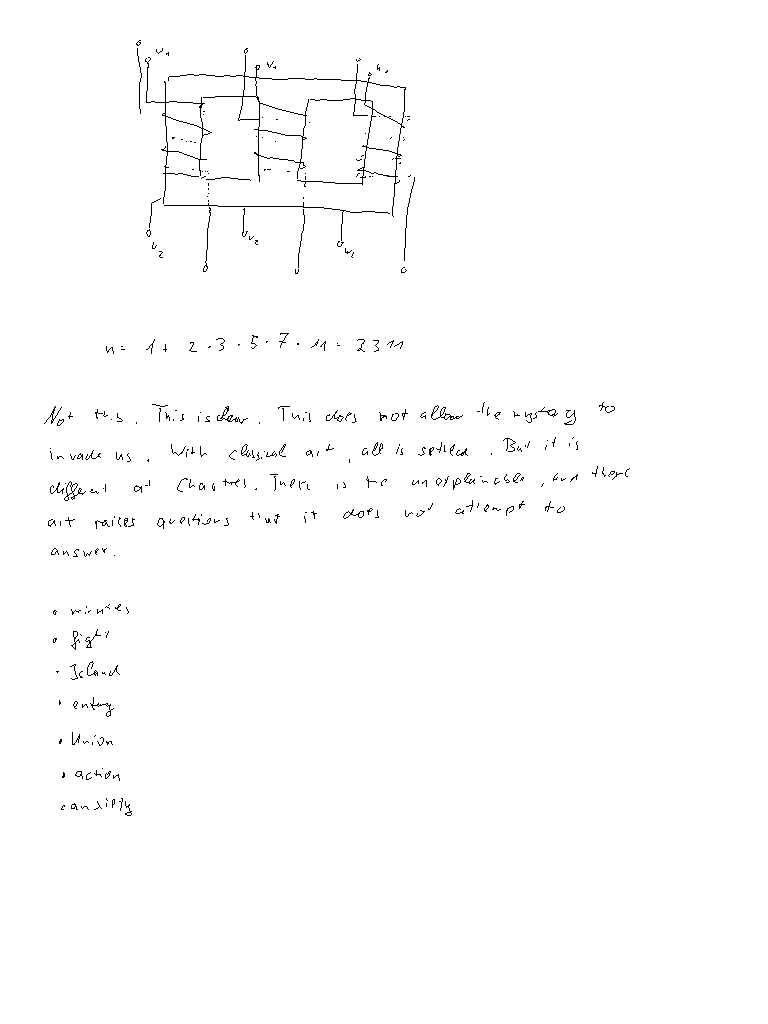 U1
V1
W1
U2
V2
W2
n = 1 + 2 · 3 · 5 · 7 · 11 = 2311
Not this. This is clear. This does not allow the mystery to
invade us. With classical art, all is settled. But it is
different at Chartres. There is the unexplainable, and there
art raises questions that it does not attempt to
answer.
• minutes
• fight
• Island
• entry
• Union
• action
• anxiety